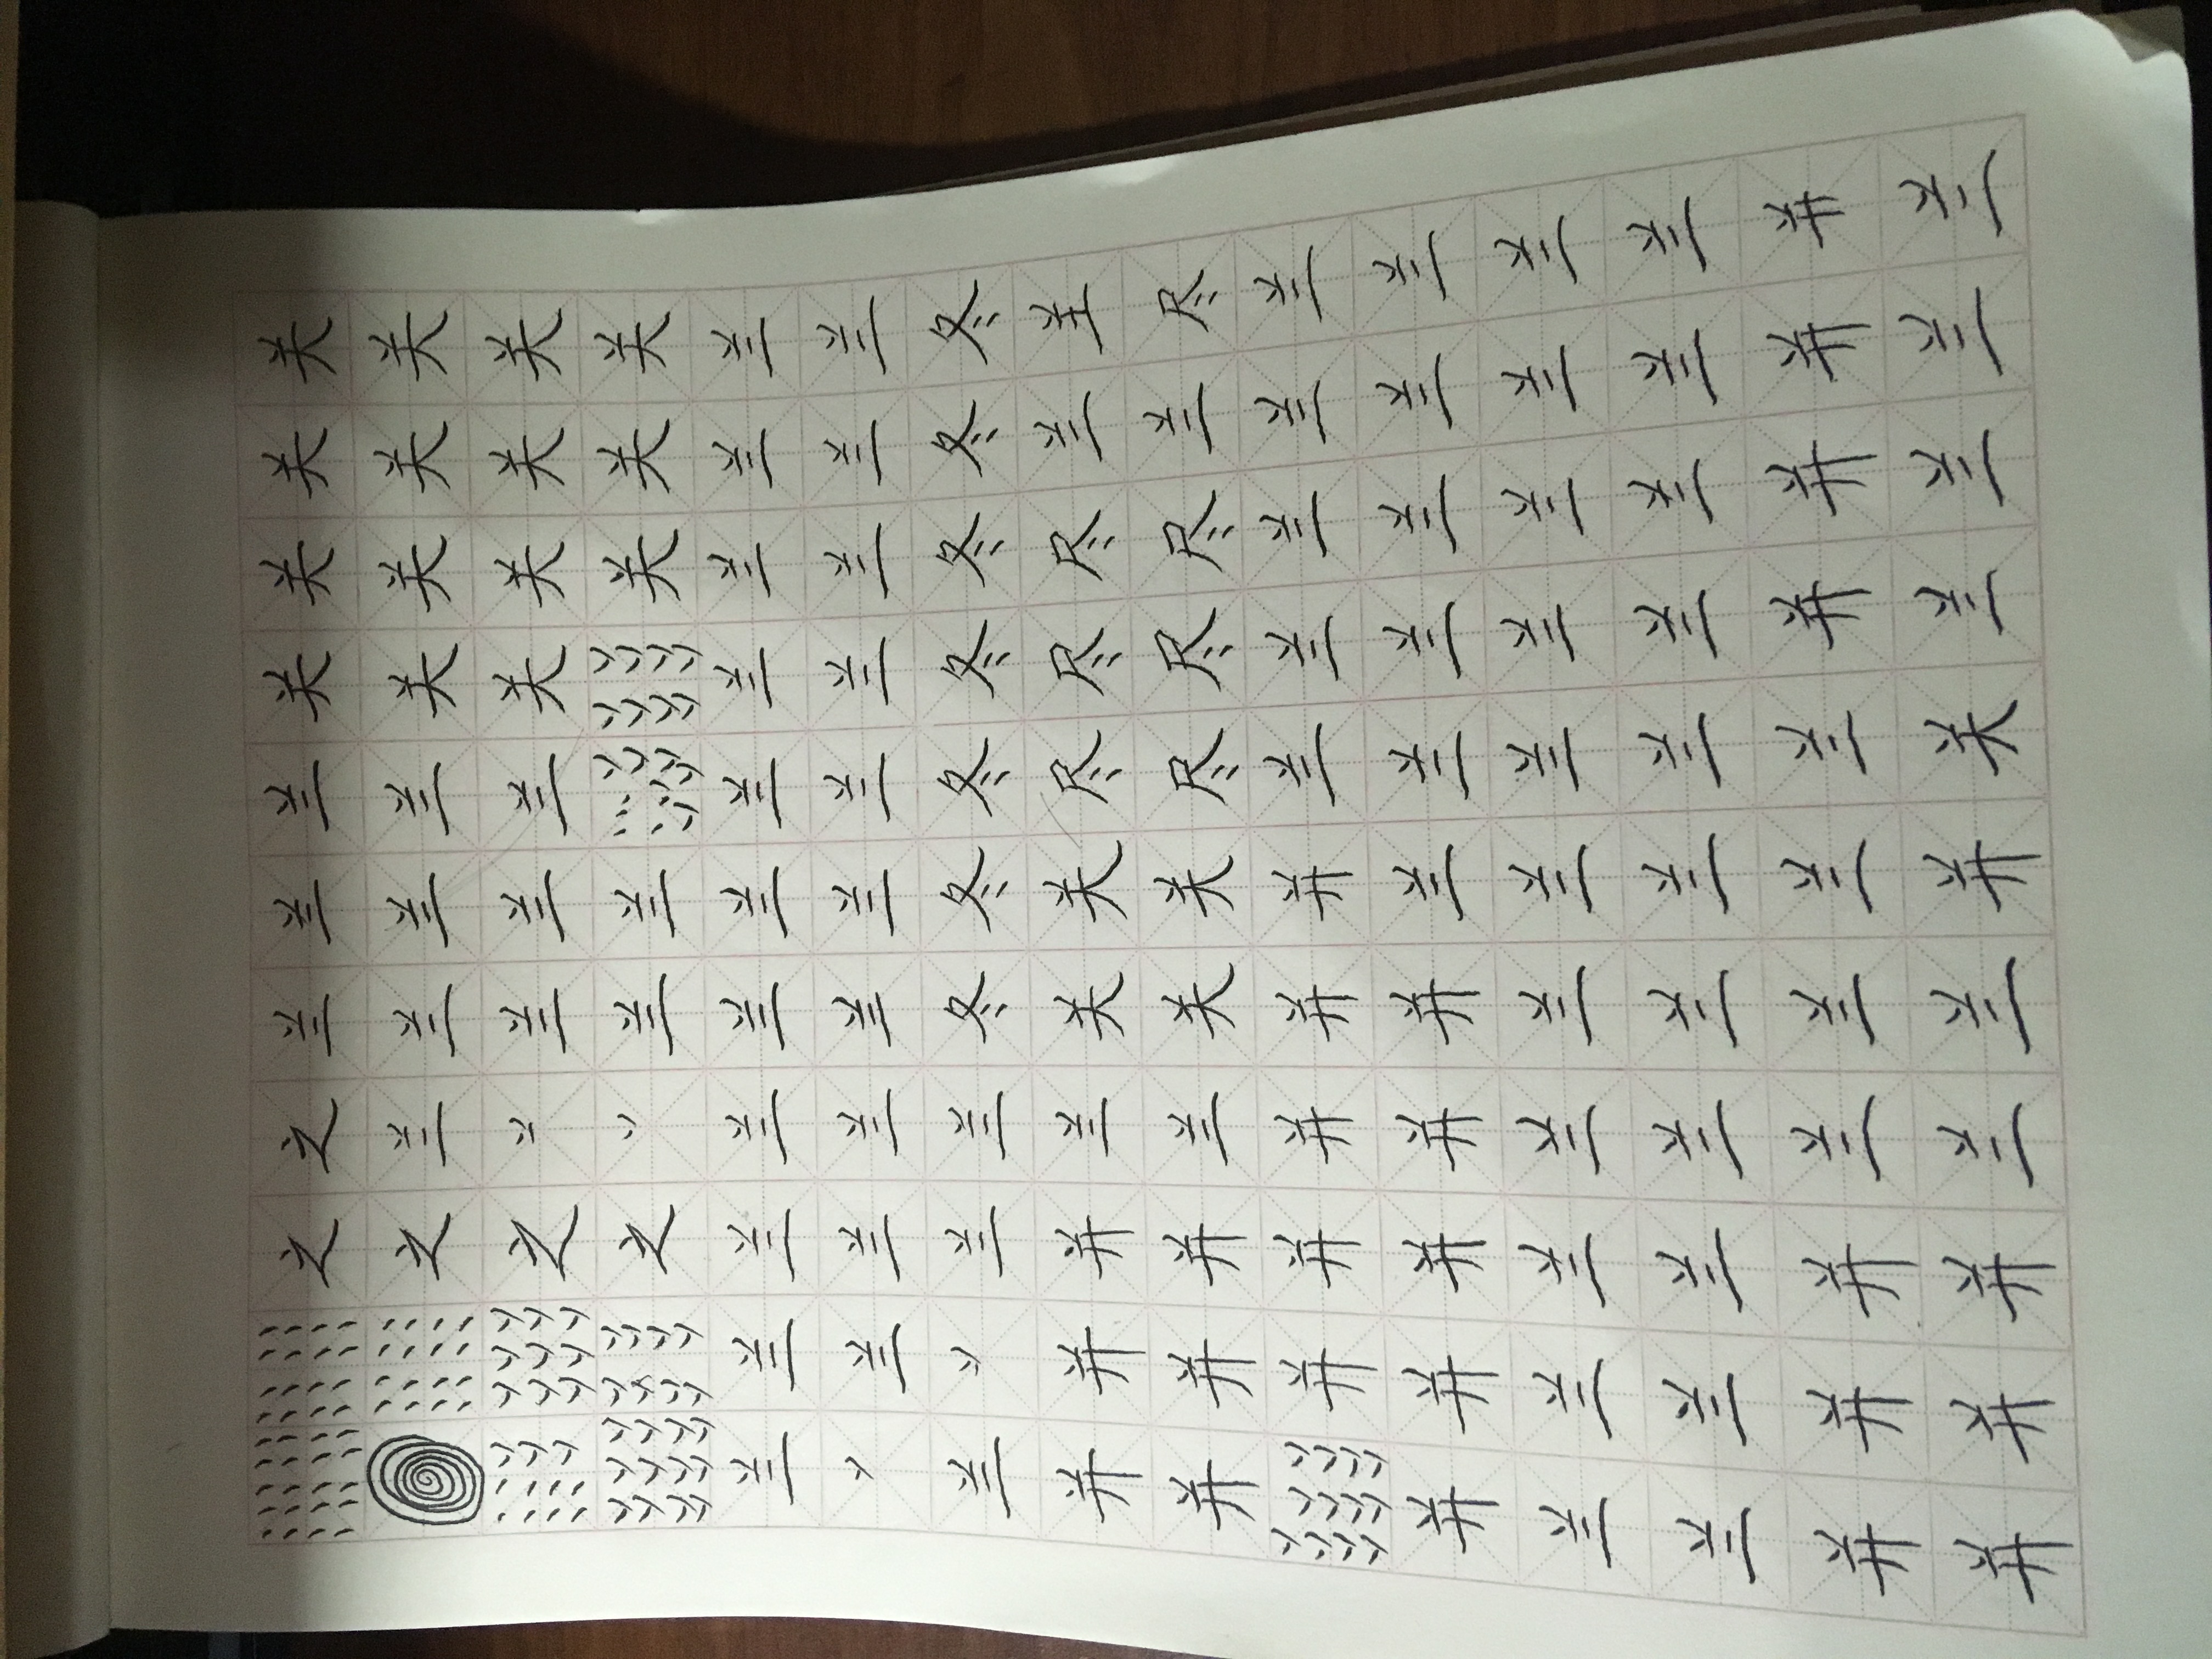 之之兰兰兰关关关关
之兰兰兰兰关关关关
之丷兰兰兰关关关关
之丷兰兰关关关
兰兰兰兰兰兰兰兰兰兰兰
丷兰兰兰兰兰兰兰兰兰兰
兰丷兰兰冬冬冬冬冬冬冬
并并并兰关关尽尽尽兰
并并并兰关关尽尽尽兰尽
并并并并并兰兰兰兰兰
并并并并并兰兰兰兰兰兰
兰兰兰兰兰兰兰兰兰兰兰
兰兰兰兰兰兰兰兰兰兰兰
并并并兰兰兰兰并并并并
并并并兰兰并关兰兰兰兰